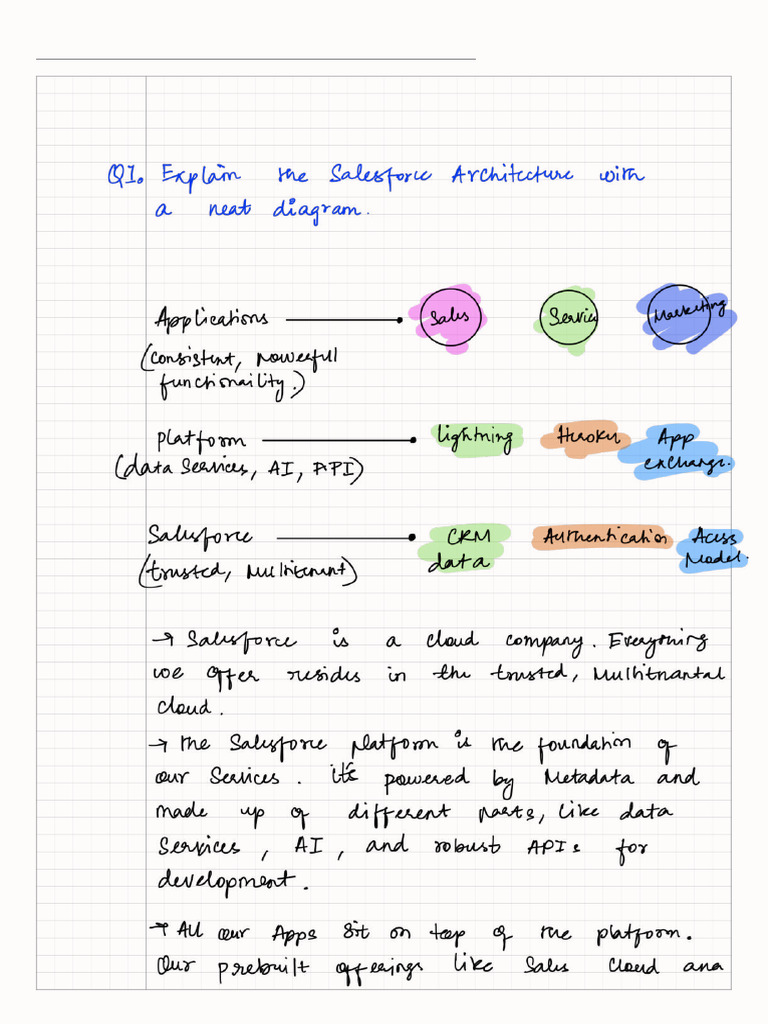 Q1. Explain the Salesforce Architecture with
a neat diagram.
Applications Sales Service Marketing
(consistent, powerful
functionaility.)
Platform lightning Heroku App
exchange.
(data Services, AI, API)
Salesforce CRM Authentication Acess
data Model.
(trusted, Multitenant)
→ Salesforce is a cloud company. Everything
we offer resides in the trusted, Multitnantal
cloud.
→ The Salesforce platform is the foundation of
our Services. It's powered by Metadata and
made up of different parts, like data
Services, AI, and robust APIs for
development.
→ All our Apps sit on top of the platform.
Our prebuilt offerings like Sales Cloud and